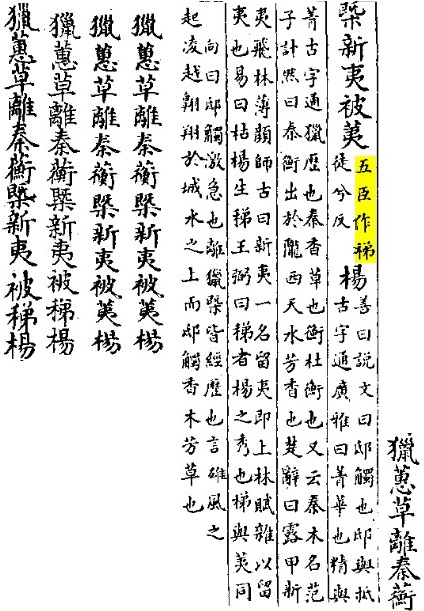 獵蕙草離秦蘅
槩新夷被荑
五臣作稊
徒兮反
楊
善曰說文曰邸觸也邸與抵
古字通廣雅曰菁華也精與
菁古字通獵歷也秦香草也衡杜衡也又云秦木名范
子計然曰秦衡出於隴西天水芳香也楚辭曰露甲新
夷飛林薄顏師古曰新夷一名留夷即上林賦雜以留
夷也易曰枯楊生稊王弼曰稊者楊之秀也稊與荑同
向曰邸觸激急也離獵槩皆經歷也言雄風之
起凌越翱翔於城水之上而邸觸香木芳草也
獵蕙草離秦蘅槩新夷被荑楊
獵蕙草離秦蘅槩新夷被荑楊
獵蕙草離秦蘅槩新夷被稊楊
獵蕙草離秦蘅槩新夷被稊楊